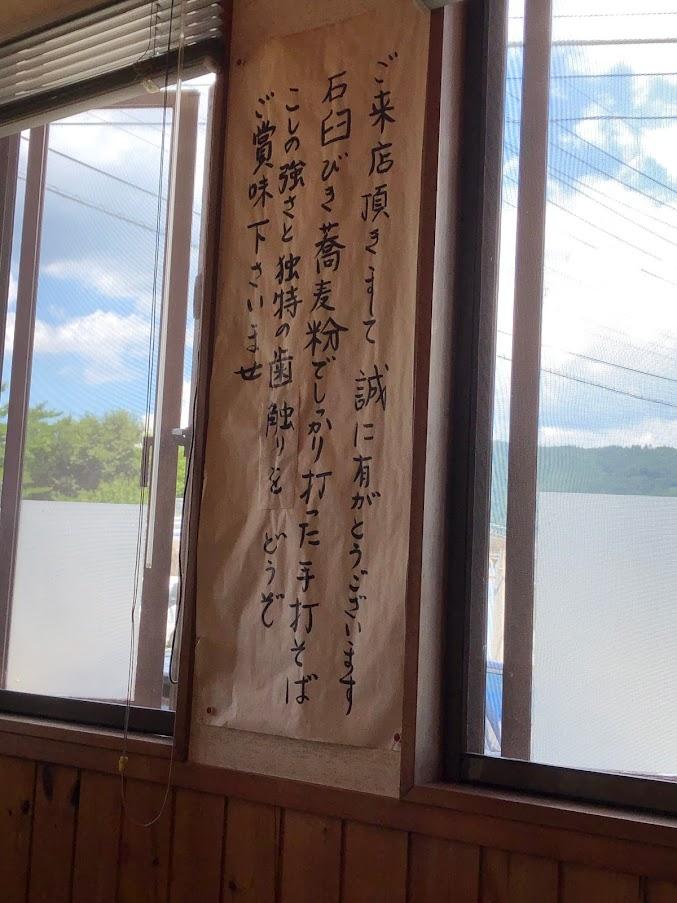 ご来店頂きまして 誠に有がとうございます
石臼びき蕎麦粉でしっかり打った手打そば
こしの強さと独特の歯触りを どうぞ
ご賞味下さいませ